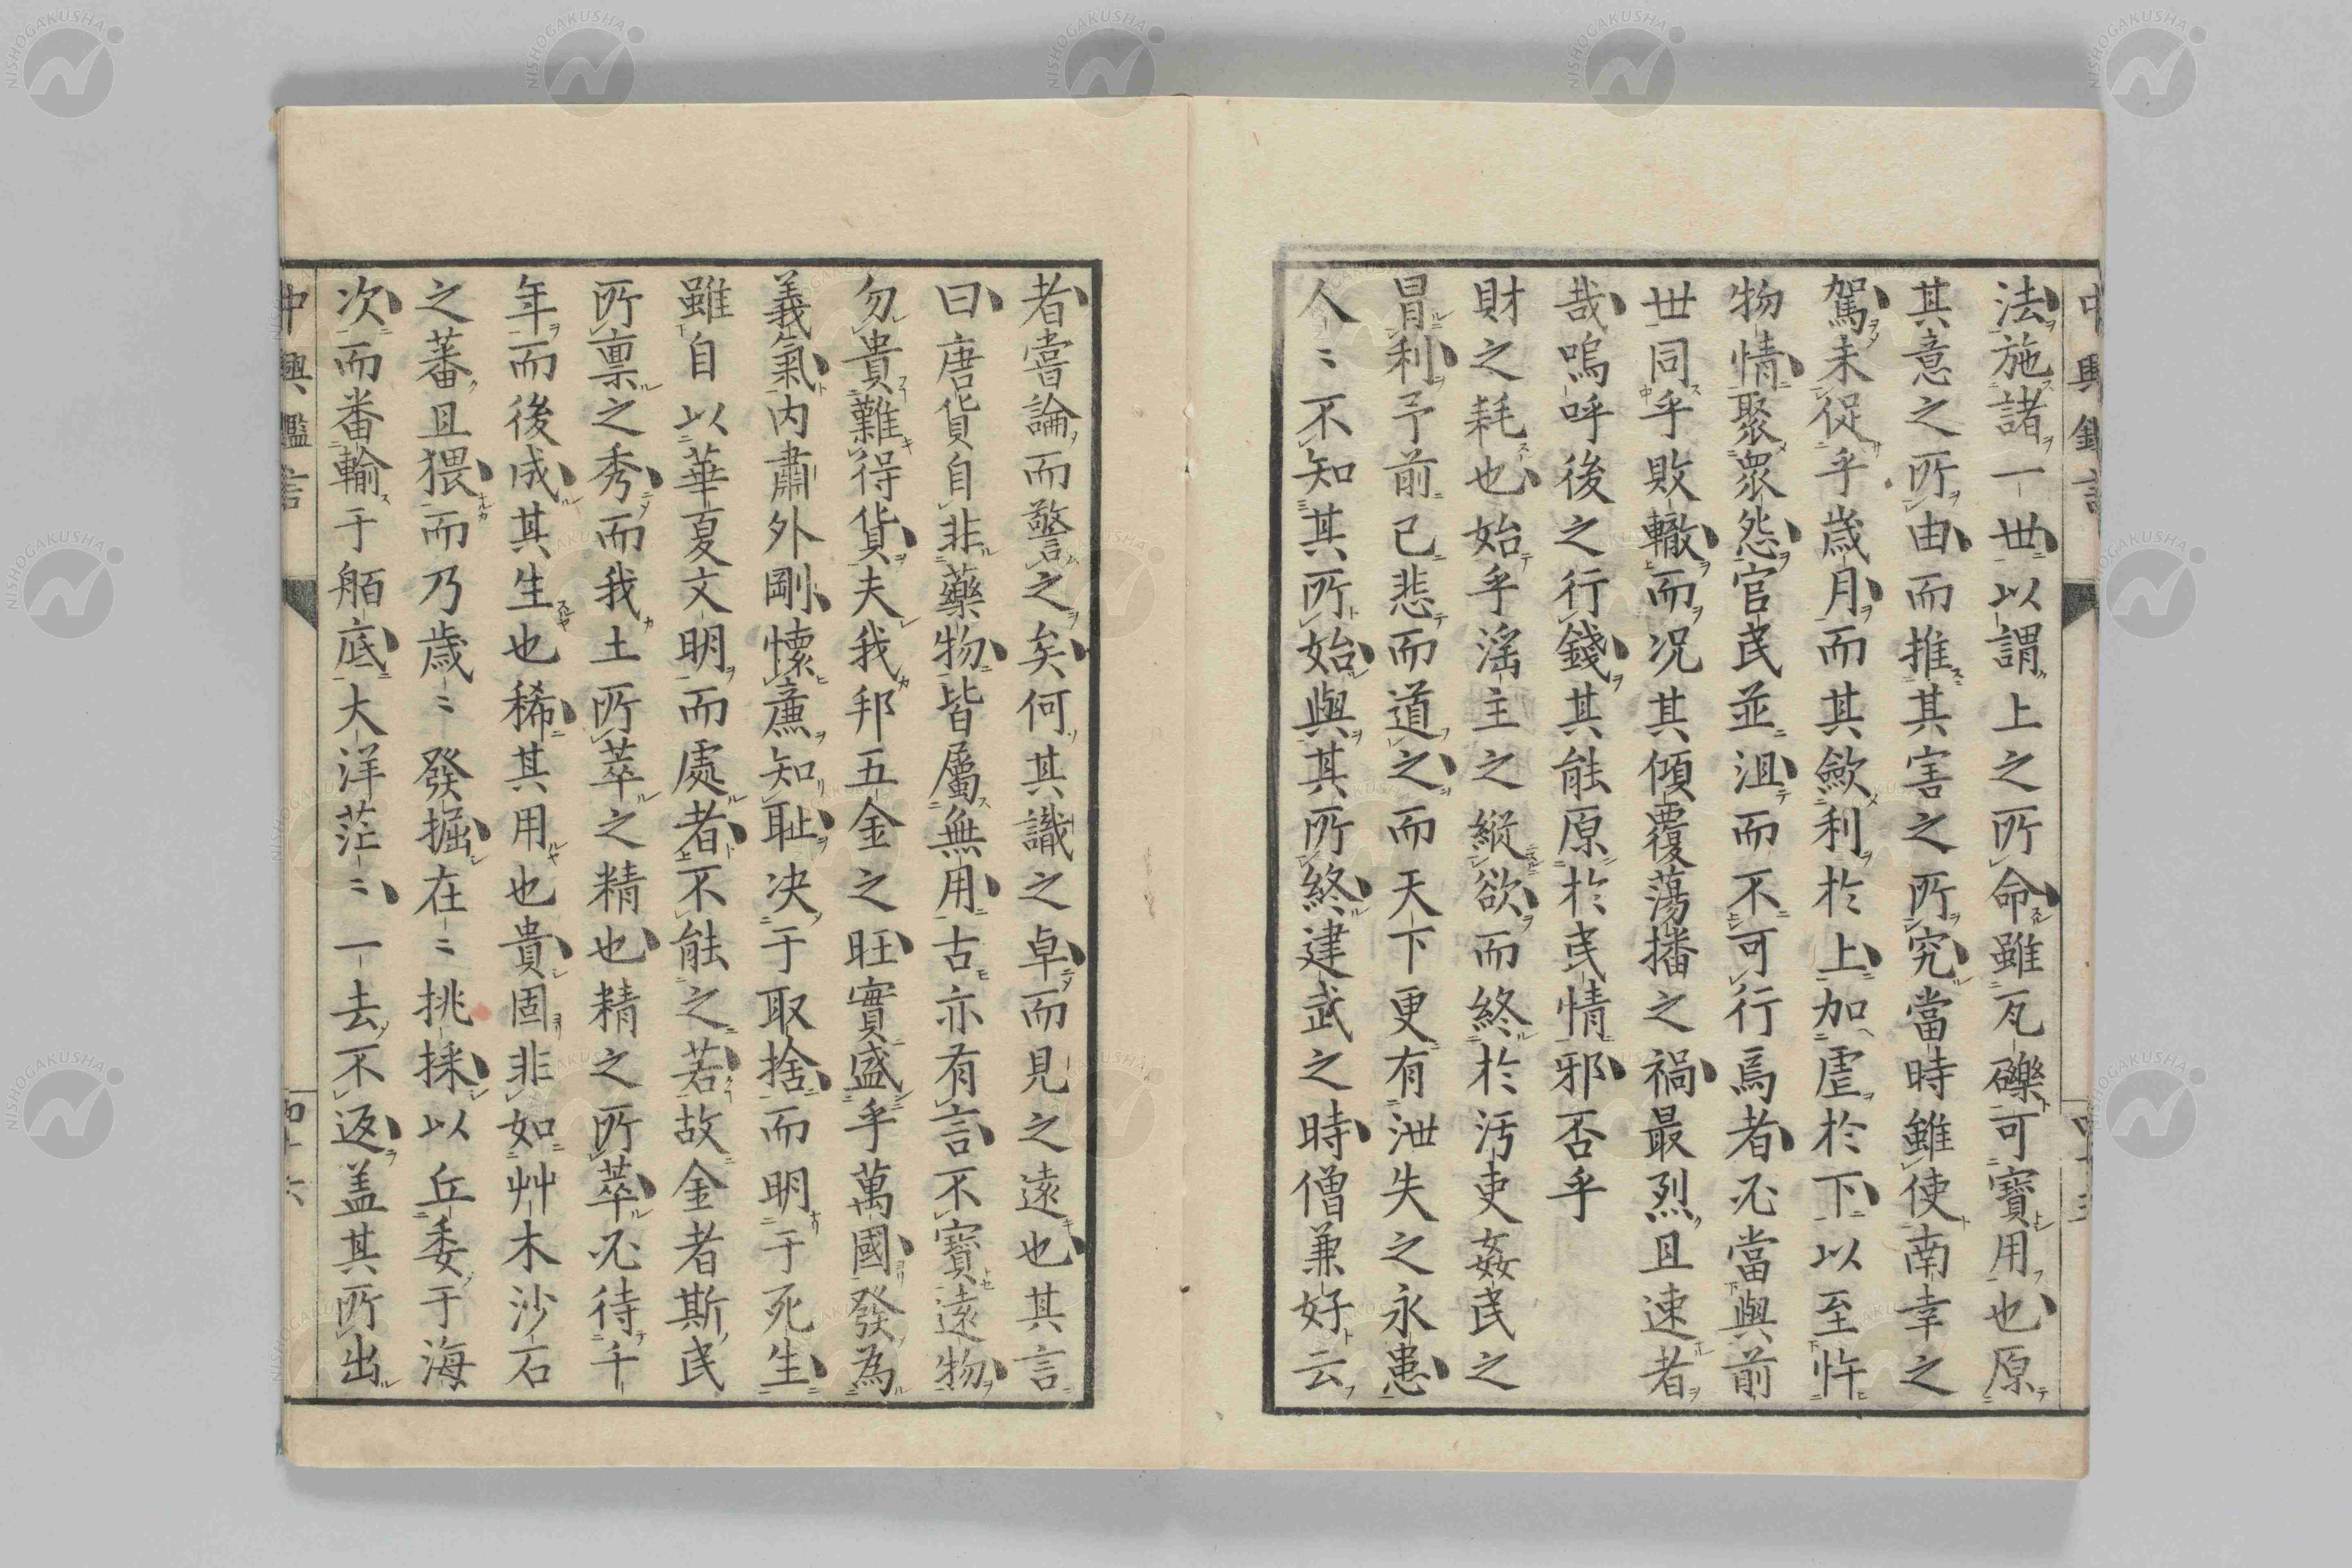 法施諸一世以謂上之所命雖瓦礫可寶用也原
其意之所由而推其害之所究當時雖使南幸之
駕未促乎歲月而其歛利於上加虐於下以至忤
物情聚衆怨官民並沮而不可行焉者必當與前
世同乎敗轍而况其傾覆蕩播之禍最烈且速者
哉嗚呼後之行錢其能原於民情邪否乎
財之耗也始乎滛主之縱欲而終於汚吏姦民之
冒利予前已悲而道之而天下更有泄失之永患
人〻不知其所始與其所終建武之時僧兼好云
者嘗論而警之矣何其識之卓而見之遠也其言
曰唐貨自非藥物皆屬無用古亦有言不寶遠物
勿貴難得貨夫我邦五金之旺實盛乎萬國發為
義氣内肅外剛懷廉知耻决于取捨而明于死生
雖自以華夏文明而處者不能之若故金者斯民
所禀之秀而我土所萃之精也精之所萃必待千
年而後成其生也稀其用也貴固非如艸木沙石
之蕃且猥而乃歲〻發掘在〻挑採以丘委于海
次而番輸于舶底大洋茫〻一去不返盖其所出
中興鑑言